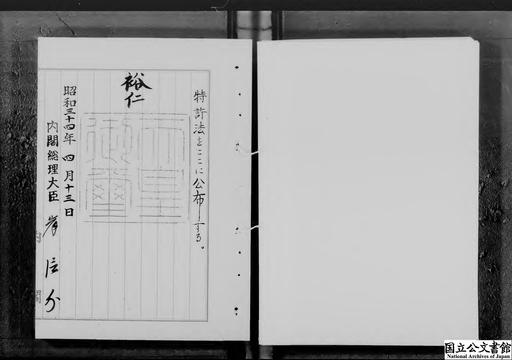 特許法をここに公布する。
裕仁
天皇御璽
昭和三十四年四月十三日
内閣総理大臣 岸信介
内閣
国立公文書館
National Archives of Japan